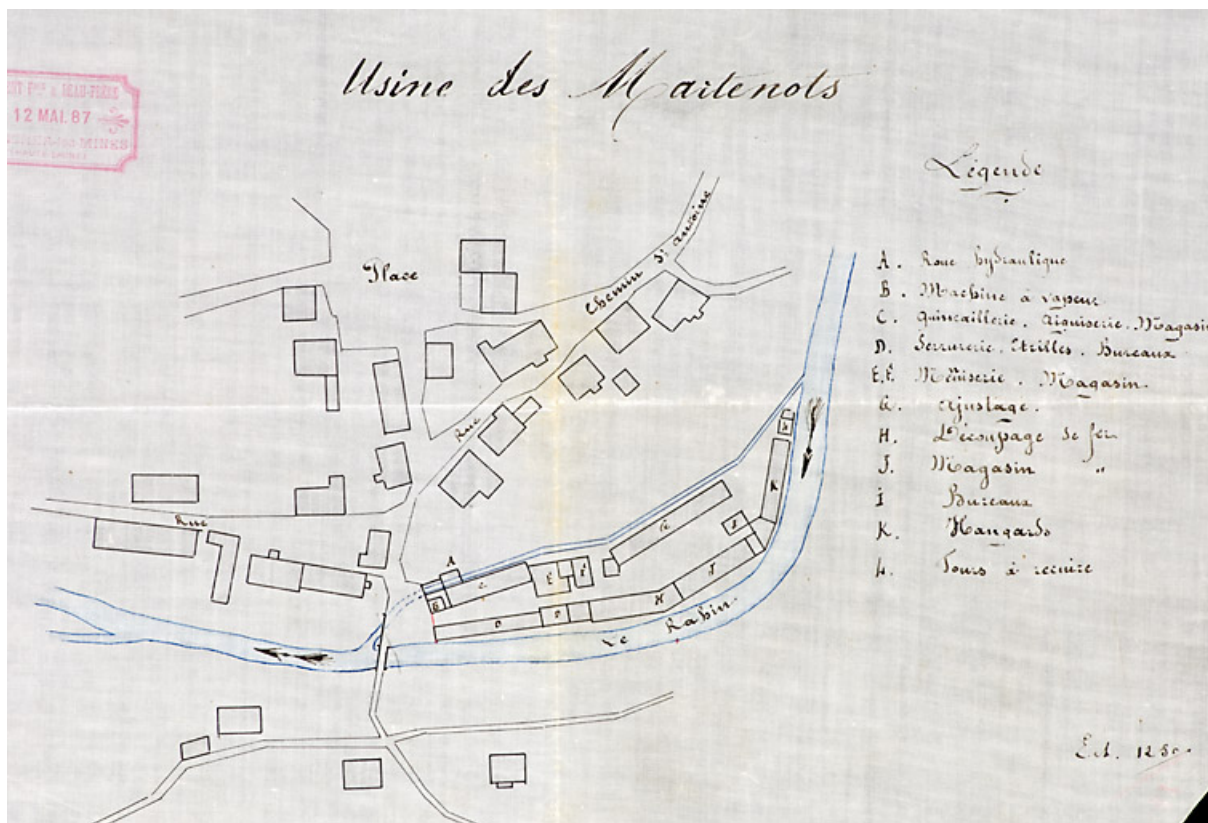 Usine des Martenots
12 MAI. 87
MINES
Légende
A. Roue hydraulique
B. Machine à vapeur
C. Quincaillerie. Aiguiserie. Magasin
D. Serrurerie. Etrilles. Bureaux
E,É. Menuiserie. Magasin.
G. Ajustage.
H. Découpage de fer
J. Magasin "
I Bureaux
K. Hangards
L. Fours à recuire
Place
Chemin St Antoine
Rue
Rue
A
B
C
D
E
H
J
K
Le Rabin
Ech. 1250